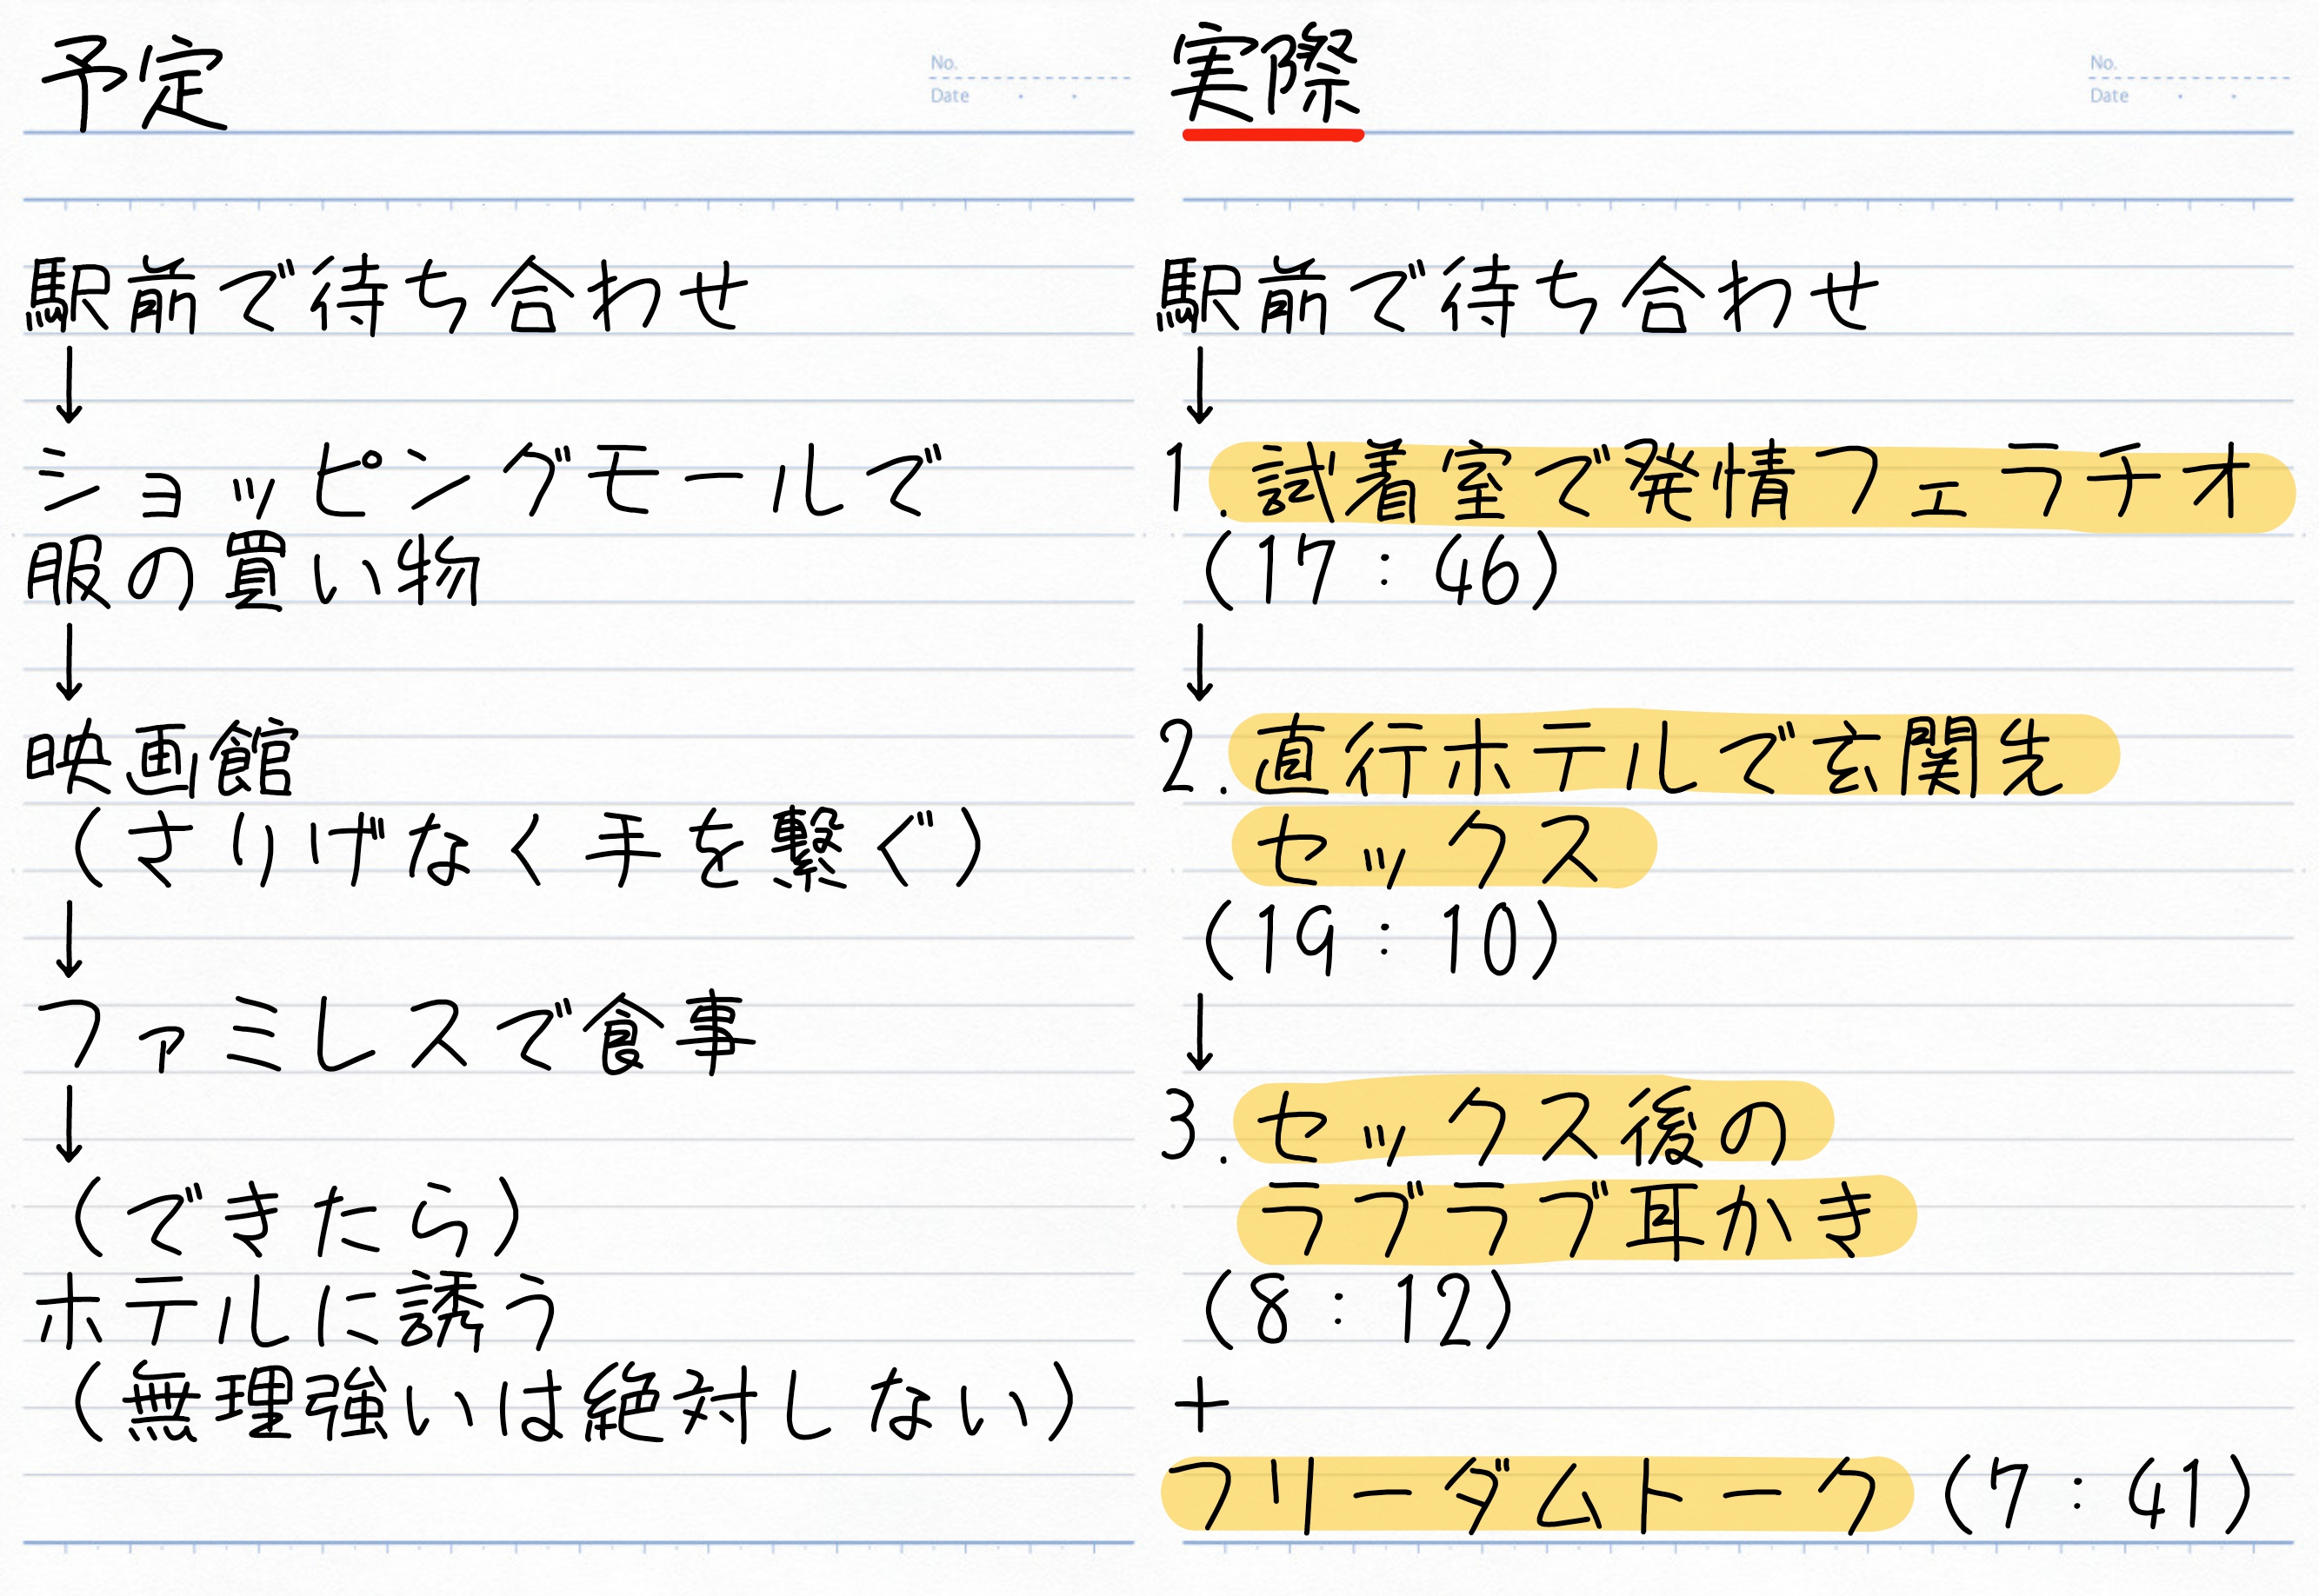 予定
No.
Date
駅前で待ち合わせ
↓
ショッピングモールで
服の買い物
↓
映画館
(さりげなく手を繋ぐ)
↓
ファミレスで食事
↓
(できたら)
ホテルに誘う
(無理強いは絶対しない)
実際
No.
Date
駅前で待ち合わせ
↓
1.試着室で発情フェラチオ
(17:46)
↓
2.直行ホテルで玄関先
セックス
(19:10)
↓
3.セックス後の
ラブラブ耳かき
(8:12)
+
フリーダムトーク(7:41)